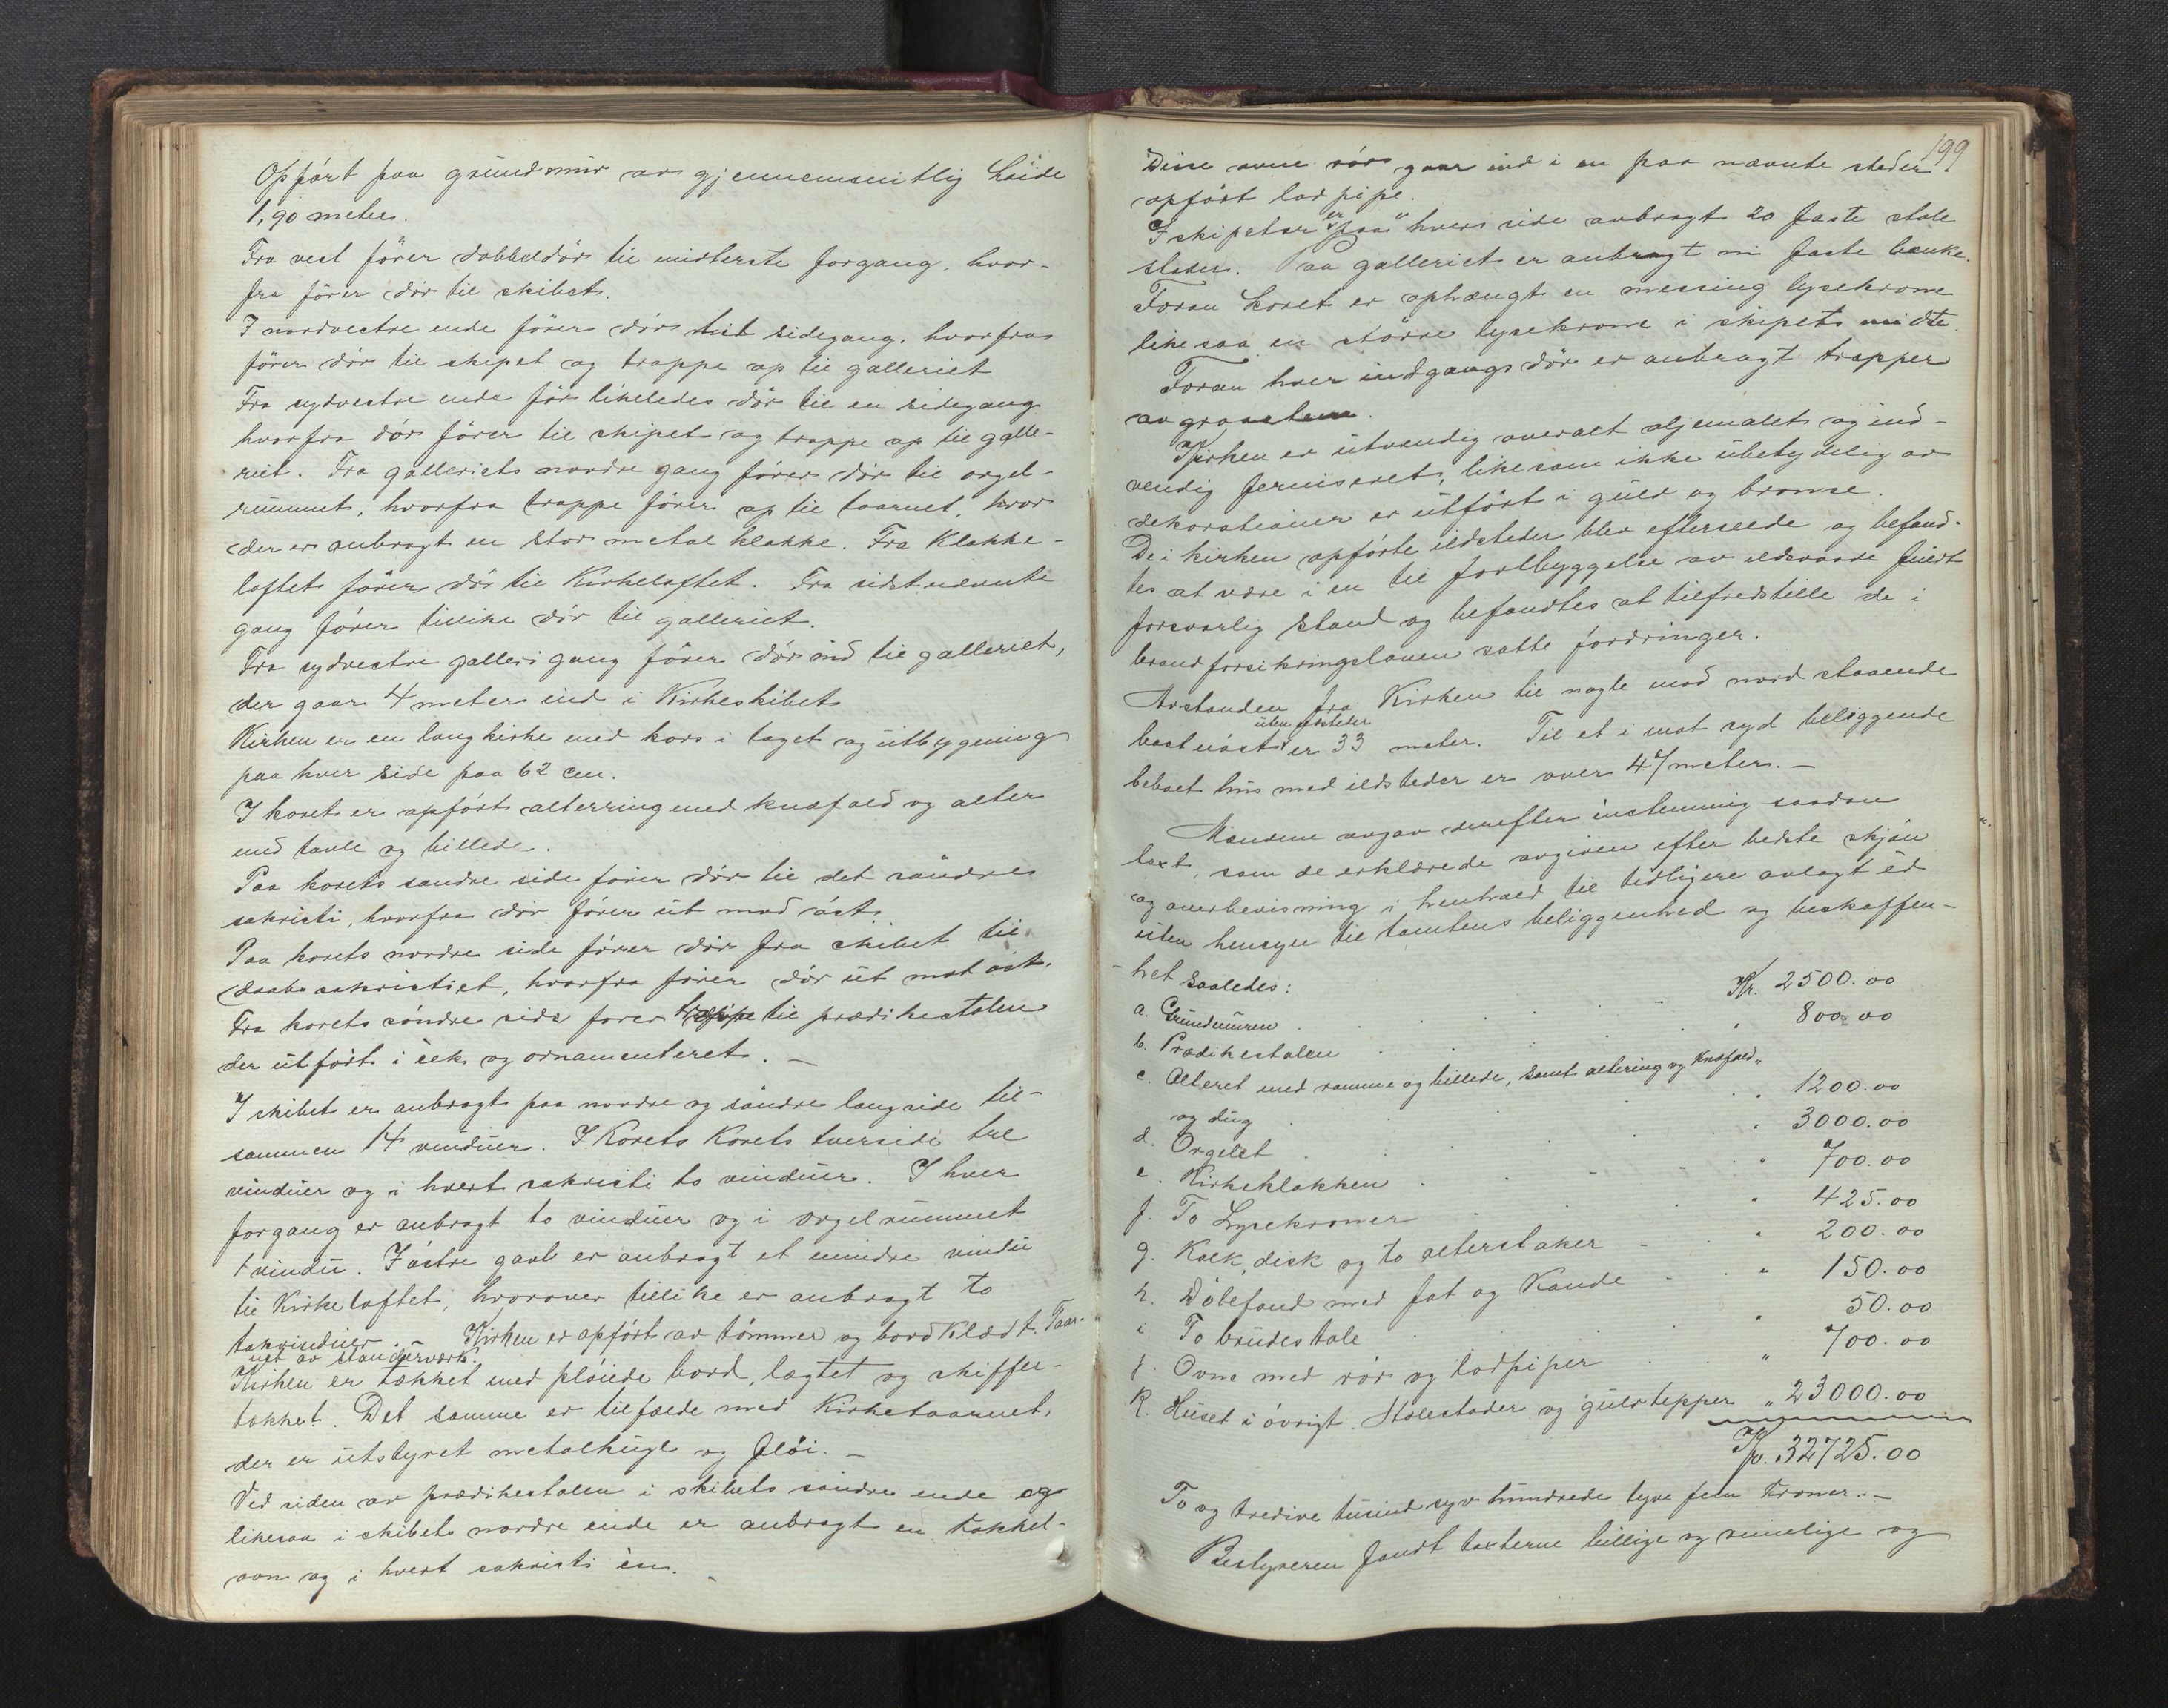 Opført paa grundmur av gjennemsnitlig høide
1,90 meter.
Fra vest fører dobbeldør til midterste forgang, hvor-
fra fører dør til skibet.
I nordvestre ende fører dør til sidegang, hvorfra
fører dør til skipet og trappe op til galleriet
Fra sydvestre ende før likeledes dør til en sidegang
hvorfra dør fører til skipet og trappe op til galle-
riet. Fra galleriets nordre gang fører dør til orgel-
rummet, hvorfra trappe fører op til taarnet, hvor
der er anbragt en stor metal klokke. Fra Klokke-
loftet fører dør til Kirkeloftet. Fra sidstnævnte
gang fører tillike dør til galleriet.
Fra sydvestre galleri gang fører dør ind til galleriet,
der gaar 4 meter ind i Kirkeskibet
Kirken er en langkirke med kors i taget og utbygning
paa hver side paa 62 cm.
I koret er opført alterring med knæfald og alter
med tavle og billede.
Paa korets søndre side fører dør til det søndre
sakristi, hvorfra dør fører ut mod øst.
Paa korets nordre side fører dør fra skibet til
daabssakristiet, hvorfra fører dør ut mot øst.
Fra korets søndre side fører trappe til prædikestolen
der utført i eek og ornamenteret. —
I skibet er anbragt paa nordre og søndre langside til-
sammen 14 vinduer. I Korets Korets tverside tre
vinduer og i hvert sakristi to vinduer. I hver
forgang er anbragt to vinduer og i orgelrummet
1 vindu. I østre gavl er anbragt et mindre vindu
til Kirkeloftet, hvorover tillike er anbragt to
takvinduer. — Kirken er opført av tømmer og bordklædt. Taar-
net av standerverk.
Kirken er tækket med pløiede bord, lægtet og skiffer-
tækket. Det samme er tilfælde med Kirketaarnet,
der er utstyret metalkugle og fløi. —
Ved siden av prædikestolen i skibets søndre ende og
likesaa i skibets nordre ende er anbragt en kakkel-
ovn og i hvert sakristi èn. —
199
Disse ovne rør gaar ind i en paa nævnte steder
opført lodpipe.
I skipet er paa hver side anbragt 20 faste stole
stader. Paa galleriet er anbragt ni faste bænke.
Foran koret er ophængt en messing lysekrone
likesaa en større lysekrone i skipets midte.
Foran hver indgangsdør er anbragt trapper
av graasten.
Kirken er utvendig overalt oljemalet og ind-
vendig ferniseret, likesom ikke ubetydelig av
dekorationer er utført i guld og bronse.
De i kirken opførte ildsteder blev efterseede og befand-
tes at være i en til forebyggelse av ildsvaade fuldt
forsvarlig stand og befandtes at tilfredstille de i
brandforsikringsloven satte fordringer.
Avstanden fra Kirken til nogle mod nord staaende
uten ildsteder
baatnøst er 33 meter. Til et i mot syd beliggende
beboet hus med ildsteder er over 47 meter. —
Mændene avgav derefter instemmig saadan
taxt, som de erklærede avgiven efter bedste skjøn
og overbevisning i henhold til tidligere avlagt ed
uten hensyn til tomtens beliggenhed og beskaffen-
het saaledes:
a. Grundmuren . . . . . Kr. 2500.00
b. Prædikestolen . . . . " 800.00
c. Alteret med ramme og billede, samt altering og Knæfald "
og dug . . . . " 1200.00
d. Orgelet . . . . " 3000.00
e. Kirkeklokken . . . . " 700.00
f. To Lysekroner . . . " 425.00
g. Kalk, disk og to alterstaker . . " 200.00
h. Døbefond med fat og Kande . . " 150.00
i. To brudestole . . . " 50.00
j. Ovne med rør og lodpiper . . " 700.00
k. Huset i øvrigt. Stolestader og gulvtepper " 23000.00
Kr. 32725.00
To og tredive tusind syv hundrede tyve fem Kroner. —
Bestyreren fandt taxterne billige og rimelige og